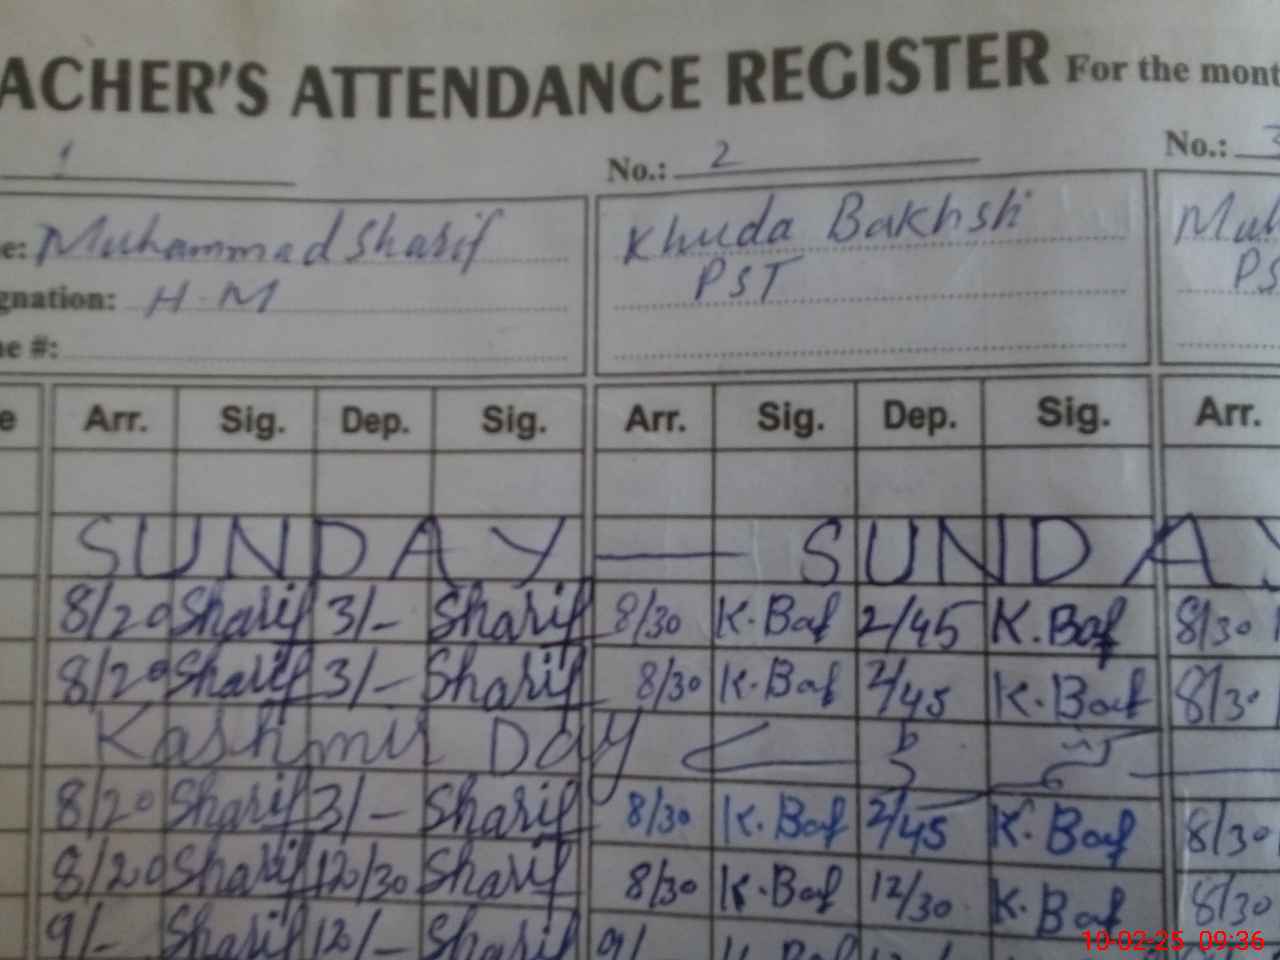 ACHER'S ATTENDANCE REGISTER For the mont
1 No.: 2 No.: 3
e: Muhammad Sharif Khuda Bakhsh Muh
gnation: H.M PST PS
e #:
e Arr. Sig. Dep. Sig. Arr. Sig. Dep. Sig. Arr.
SUNDAY — SUNDAY
8/20 Sharif 3/- Sharif 8/30 K.Baf 2/45 K.Baf 8/30
8/20 Sharif 3/- Sharif 8/30 K.Baf 2/45 K.Baf 8/30
Kashmir Day
8/20 Sharif 3/- Sharif 8/30 K.Baf 2/45 K.Baf 8/30
8/20 Sharif 12/30 Sharif 8/30 K.Baf 12/30 K.Baf 8/30
9/- Sharif 12/- Sharif 9/
10-02-25 09:36